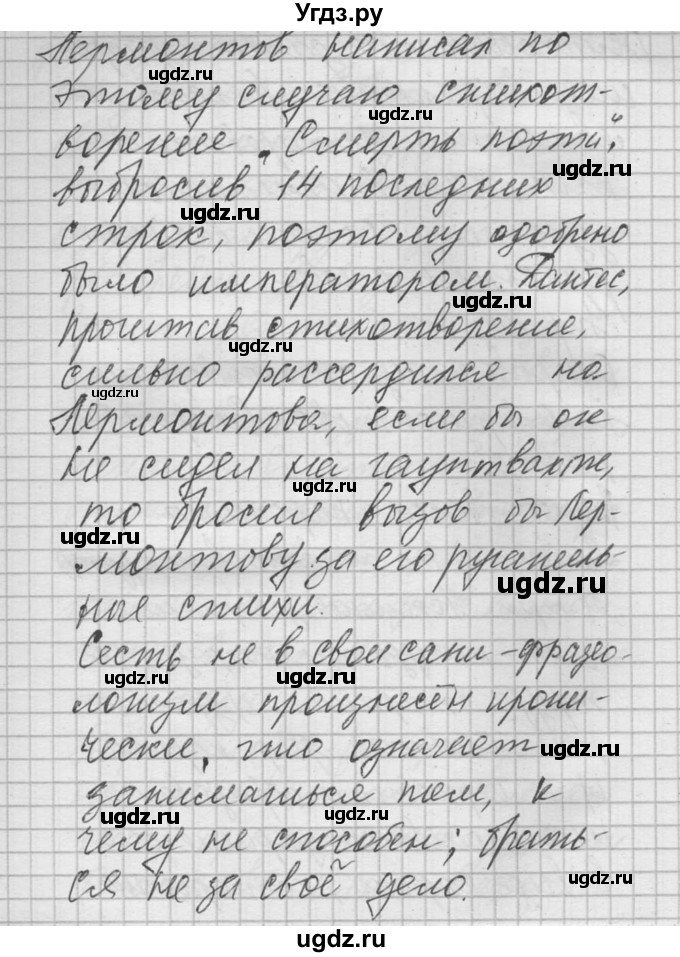 Угдз.ру
Лермонтов написал по
ugdz.ru ugdz.ru
этому случаю стихот-
ugdz.ru
ворение „Смерть поэта",
ugdz.ru
выбросив 14 последних
ugdz.ru
строк, поэтому одобрено
было императором. Дантес,
ugdz.ru
прочитав стихотворение,
ugdz.ru
сильно рассердился на
ugdz.ru
Лермонтова, если бы он
не сидел на гауптвахте,
ugdz.ru
то бросил вызов бы Лер-
ugdz.ru
монтову за его ругатель-
ugdz.ru
ные стихи.
Сесть не в свои сани - фразео-
ugdz.ru ugdz.ru
логизм произнесён ирони-
чески, что означает ugdz.ru
заниматься тем, к
ugdz.ru ugdz.ru
чему не способен; брать-
ся не за своё дело.
ugdz.ru
ugdz.ru